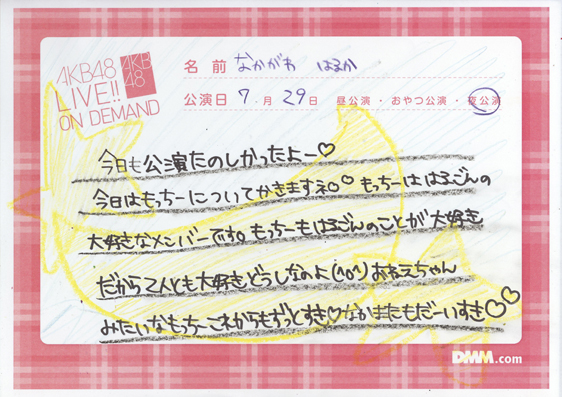 AKB48
LIVE!!
ON DEMAND
AKB
48
名 前 なかがわ はるか
公演日 7 月 29 日 昼公演・おやつ公演・夜公演
今日も公演たのしかったよー♡
今日はもっちーについてかきますネ♡♡ もっちーははるごんの
大好きなメンバーです。もっちーもはるごんのことが大好き
だから2人とも大好きどうしなのよ(^o^)おねえちゃん
みたいなもっちーこれからもずっとすき♡なかまたもだーいすき♡♡
DMM.com